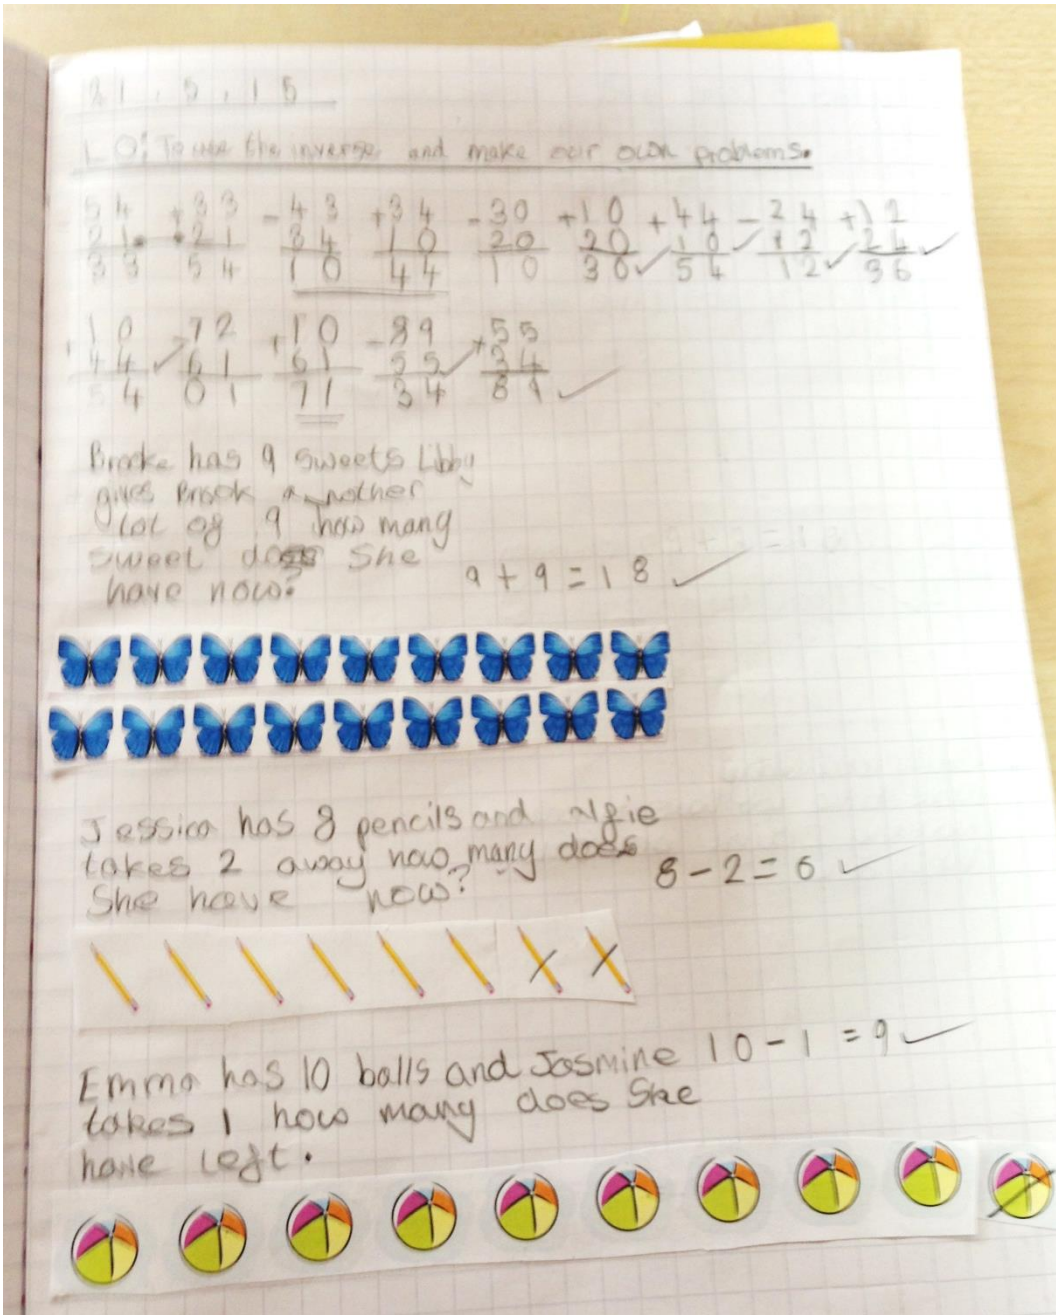 21.5.15
LO: To use the inverse and make our own problems.
54 +33 -43 +34 -30 +10 +44 -24 +12
21 21 34 10 20 20 10 12 24
33 54 10 44 10 30 54 12 36
10 -72 +10 -89 +55
+44 61 61 55 34
54 01 71 34 89
Brooke has 9 sweets Libby
gives Brook a nother
lot of 9 how many
sweet does She
have now? 9+9=18
Jessica has 8 pencils and alfie
takes 2 away how many does
She have now? 8-2=6
Emma has 10 balls and Jasmine 10-1=9
takes 1 how many does She
have left.